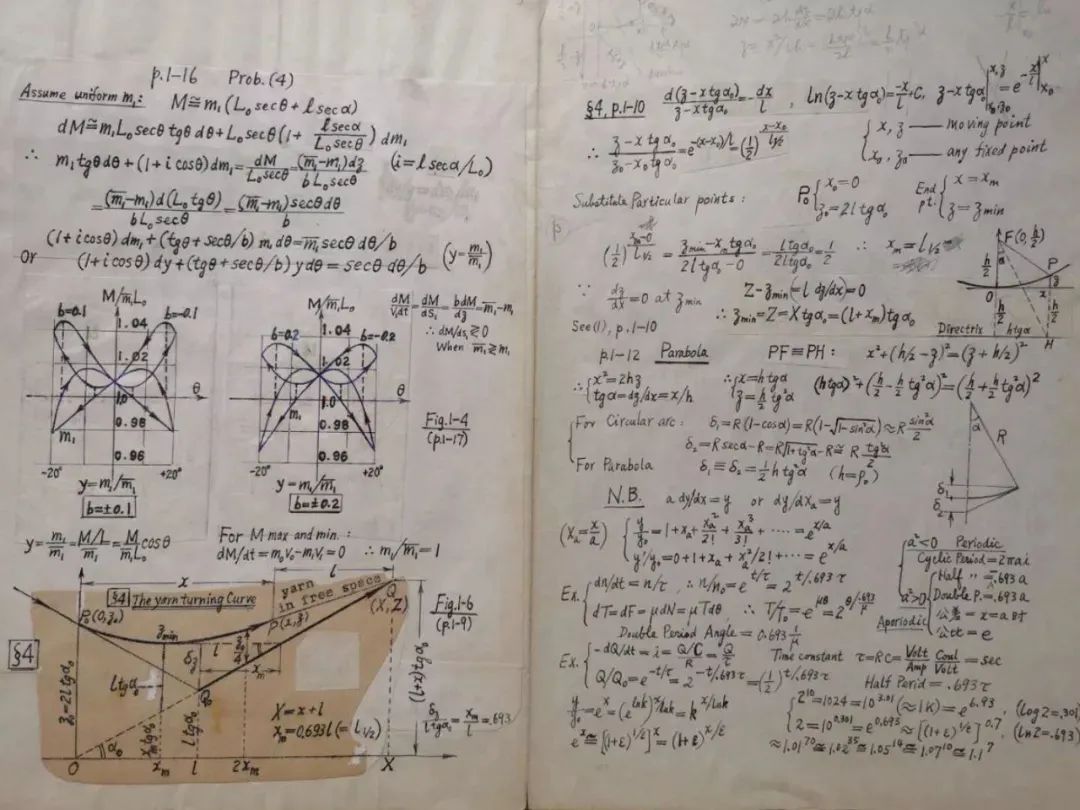 p.1-16 Prob.(4)
Assume uniform m₁: M≅m₁(L₀secθ+lsecα)
dM≅m₁L₀secθtgθdθ+L₀secθ(1+ lsecα/L₀secθ)dm₁
∴ m₁tgθdθ+(1+icosθ)dm₁=dM/L₀secθ=(m̄₁-m₁)dz/bL₀secθ (i=lsecα/L₀)
=(m̄₁-m₁)d(L₀tgθ)/bL₀secθ=(m̄₁-m₁)secθdθ/b
Or (1+icosθ)dm₁+(tgθ+secθ/b)m₁dθ=m̄₁secθdθ/b
(1+icosθ)dy+(tgθ+secθ/b)ydθ=secθdθ/b (y=m₁/m̄₁)
M/m̄₁L₀
b=0.1 b=-0.1
1.04
1.02
1.0
0.98
0.96
m₁
θ
-20° +20°
y=m₁/m̄₁
b=±0.1
M/m̄₁L₀
b=0.2 b=-0.2
1.04
1.02
1.0
0.98
0.96
m₁
θ
-20° +20°
y=m₁/m̄₁
b=±0.2
∵ dM/V₁dt=dM/dS₁=bdM/dz=m̄₁-m₁
∴ dM/ds₁≷0
When m̄₁≷m₁
Fig.1-4
(p.1-17)
y=m₁/m̄₁=M/L/m̄₁=M/m̄₁L₀ cosθ
For M max and min.:
dM/dt=m₀V₀-m₁V₁=0 ∴ m₁/m̄₁=1
§4 The yarn turning Curve
yarn
in free space
x l
P₀(0,z₀)
P(x,z)
Q
(X,Z)
Fig.1-6
(p.1-9)
§4
z₀=2ltgα₀
z min
ltgα₀
δz
l
xₘ
Q₀
X=x+l
xₘ=0.693l(=L₁/₂)
(l+x)tgα₀
δz/ltgα₀=xₘ/l=.693
α₀
xₘtgα₀
ltgα₀
O xₘ l 2xₘ X
§4, p.1-10 d(z-xtgα₀)/z-xtgα₀=-dx/l, ln(z-xtgα₀)=-x/l+C, z-xtgα₀|x,z x₀,z₀=e^-x/l|x x₀
∴ z-xtgα₀/z₀-x₀tgα₀=e^-(x-x₀)/l=(1/2)^x-x₀/L₁/₂
{x, z —— moving point
x₀, z₀ —— any fixed point
Substitute Particular points: P₀{x₀=0
z₀=2ltgα₀
End pt.{x=xₘ
z=z min
(1/2)^xₘ-0/L₁/₂=z min-xₘtgα₀/2ltgα₀-0=ltgα₀/2ltgα₀=1/2 ∴ xₘ=L₁/₂
∵ dz/dx=0 at z min Z-z min=(l dz/dx)=0
See(1), p.1-10 ∴ z min=Z=Xtgα₀=(l+xₘ)tgα₀
F(0,h/2)
h/2
α
P
z
O x
h/2
Directrix htgα
H
p.1-12 Parabola PF≡PH: x²+(h/2-z)²=(z+h/2)²
∴{x²=2hz
tgα=dz/dx=x/h
∴{x=htgα
z=h/2 tg²α
(htgα)²+(h/2-h/2 tg²α)²=(h/2+h/2 tg²α)²
For Circular arc: δ₁=R(1-cosα)=R(1-√1-sin²α)≈R sin²α/2
δ₂=Rsecα-R=R√1+tg²α-R≅R tg²α/2
For Parabola δ₁≡δ₂=1/2 htg²α (h=ρ₀)
α
R
δ₁
δ₂
N.B. a dy/dx=y or dy/dxₐ=y
(Xₐ=x/a) {y/y₀=1+xₐ+xₐ²/2!+xₐ³/3!+……=e^x/a
y'/y₀=0+1+xₐ+xₐ²/2!+……=e^x/a
a²<0 Periodic
Cyclic Period=2πai
a²>0 Aperiodic
Half 〃 =-.693a
Double P.=.693a
公差=x=aDt
公比=e
Ex.{dn/dt=n/τ, ∴ n/n₀=e^t/τ=2^t/.693τ
dT=dF=μdN=μTdθ, ∴ T/T₀=e^μθ=2^θ/.693/μ
Double Period Angle=0.693 1/μ
Ex.{-dQ/dt=i=Q/C/R=Q/τ Time constant τ=RC=Volt/Amp Coul/Volt=sec
Q/Q₀=e^-t/τ=2^-t/.693τ=(1/2)^t/.693τ Half Perid=.693τ
y/y₀=e^x=(e^lnk)^x/lnk=k^x/lnk
e^x≅[(1+ε)^1/ε]^x=(1+ε)^x/ε
{2¹⁰=1024=10^3.01(≈1K)=e^6.93 (Log2=.301)
2=10^0.301=e^0.693≈[(1+ε)^1/ε]^0.7 (ln2=.693)
≈1.01⁷⁰≅1.02³⁵≅1.05¹⁴≅1.07¹⁰≅1.1⁷